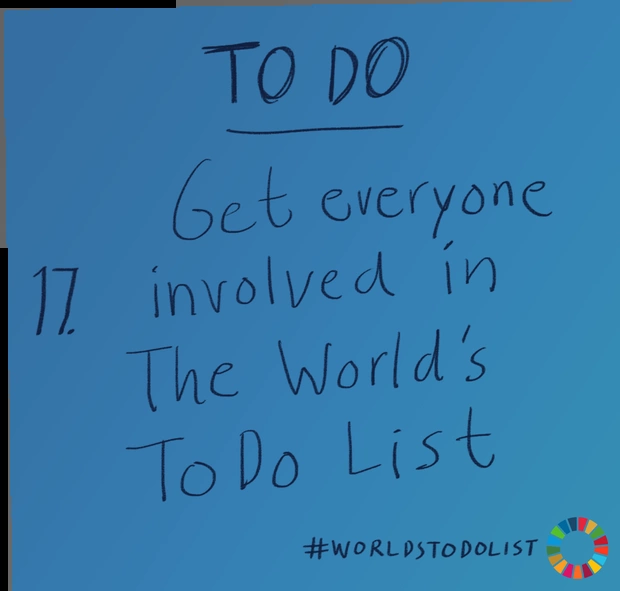 TO DO
Get everyone
17. involved in
The World's
To Do List
#WORLDSTODOLIST